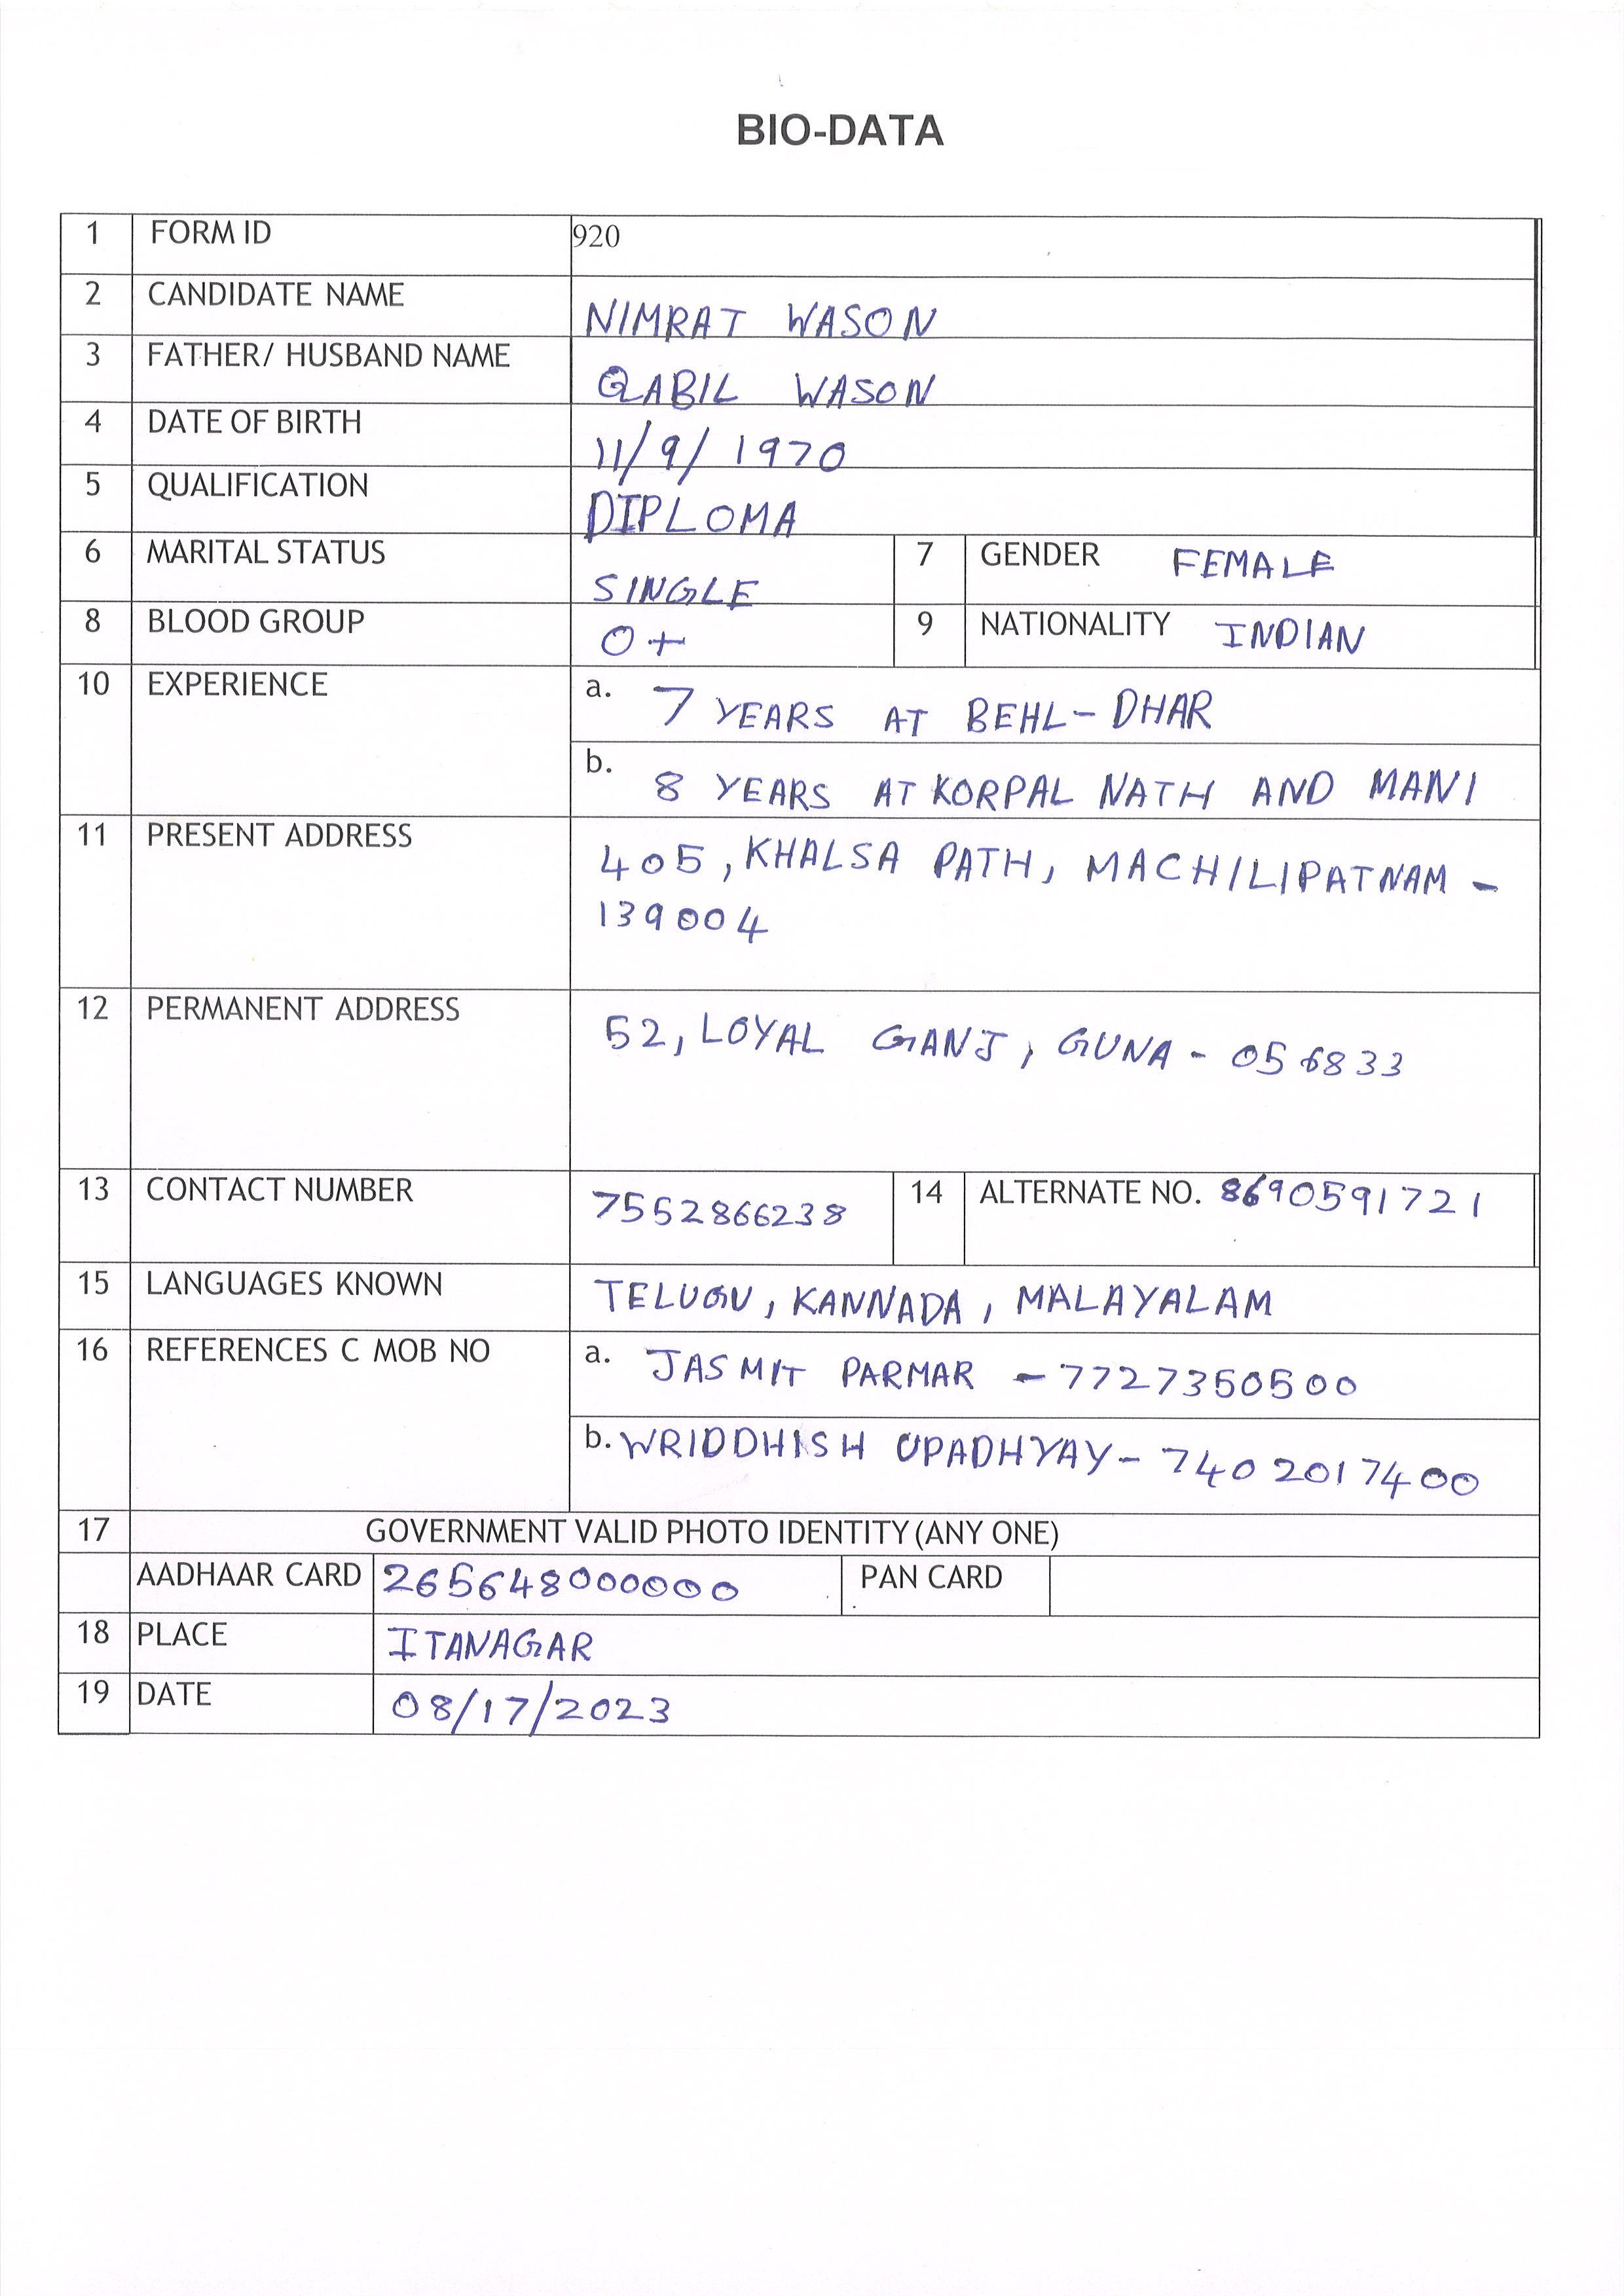 BIO-DATA
1 FORM ID 920
2 CANDIDATE NAME NIMRAT WASON
3 FATHER/ HUSBAND NAME QABIL WASON
4 DATE OF BIRTH 11/9/1970
5 QUALIFICATION DIPLOMA
6 MARITAL STATUS SINGLE 7 GENDER FEMALE
8 BLOOD GROUP O+ 9 NATIONALITY INDIAN
10 EXPERIENCE a. 7 YEARS AT BEHL-DHAR
b. 8 YEARS AT KORPAL NATH AND MANI
11 PRESENT ADDRESS 405, KHALSA PATH, MACHILIPATNAM -
139004
12 PERMANENT ADDRESS 52, LOYAL GANJ, GUNA - 056833
13 CONTACT NUMBER 7552866238 14 ALTERNATE NO. 8690591721
15 LANGUAGES KNOWN TELUGU, KANNADA, MALAYALAM
16 REFERENCES C MOB NO a. JASMIT PARMAR - 7727350500
b. WRIDDHISH UPADHYAY - 7402017400
17 GOVERNMENT VALID PHOTO IDENTITY (ANY ONE)
AADHAAR CARD 265648000000 PAN CARD
18 PLACE ITANAGAR
19 DATE 08/17/2023